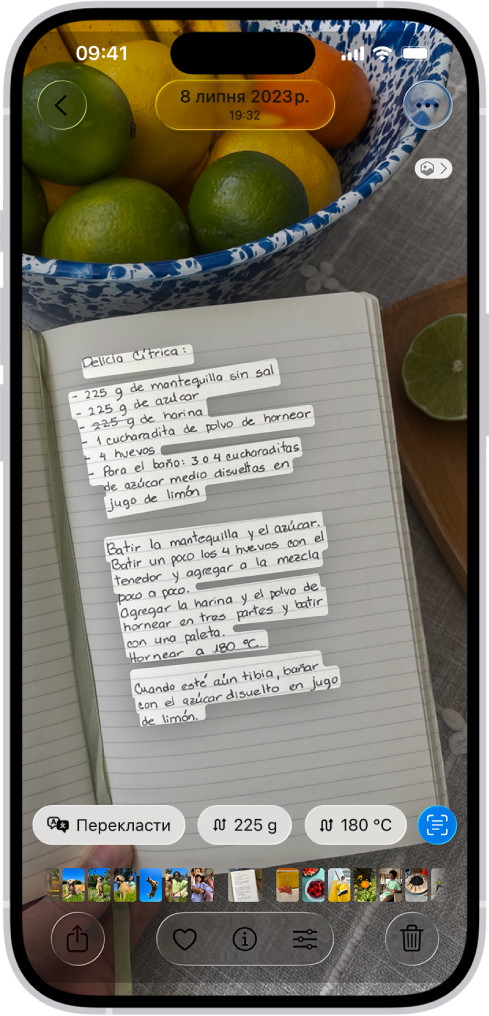 09:41
8 липня 2023 р.
19:32
Delicia Cítrica:
- 225 g de mantequilla sin sal
- 225 g de azúcar
- 225 g de harina
- 1 cucharadita de polvo de hornear
- 4 huevos
- Para el baño: 3 o 4 cucharaditas
de azúcar medio disueltas en
jugo de limón
Batir la mantequilla y el azúcar.
Batir un poco los 4 huevos con el
tenedor y agregar a la mezcla
poco a poco.
Agregar la harina y el polvo de
hornear en tres partes y batir
con una paleta.
Hornear a 180 °C.
Cuando esté aún tibia, bañar
con el azúcar disuelto en jugo
de limón.
Перекласти
225 g
180 °C